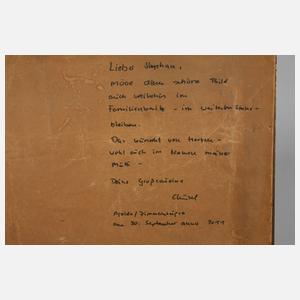 Lieber Stephan,
möge dies schöne Bild
auch weiterhin im
Familienbesitz – im weitesten Sinne –
bleiben.
Das wünscht von Herzen –
wohl auch im Namen meiner
Mutti –
Deine Großcousine
Apolda/Zimmern
am 30. September anno